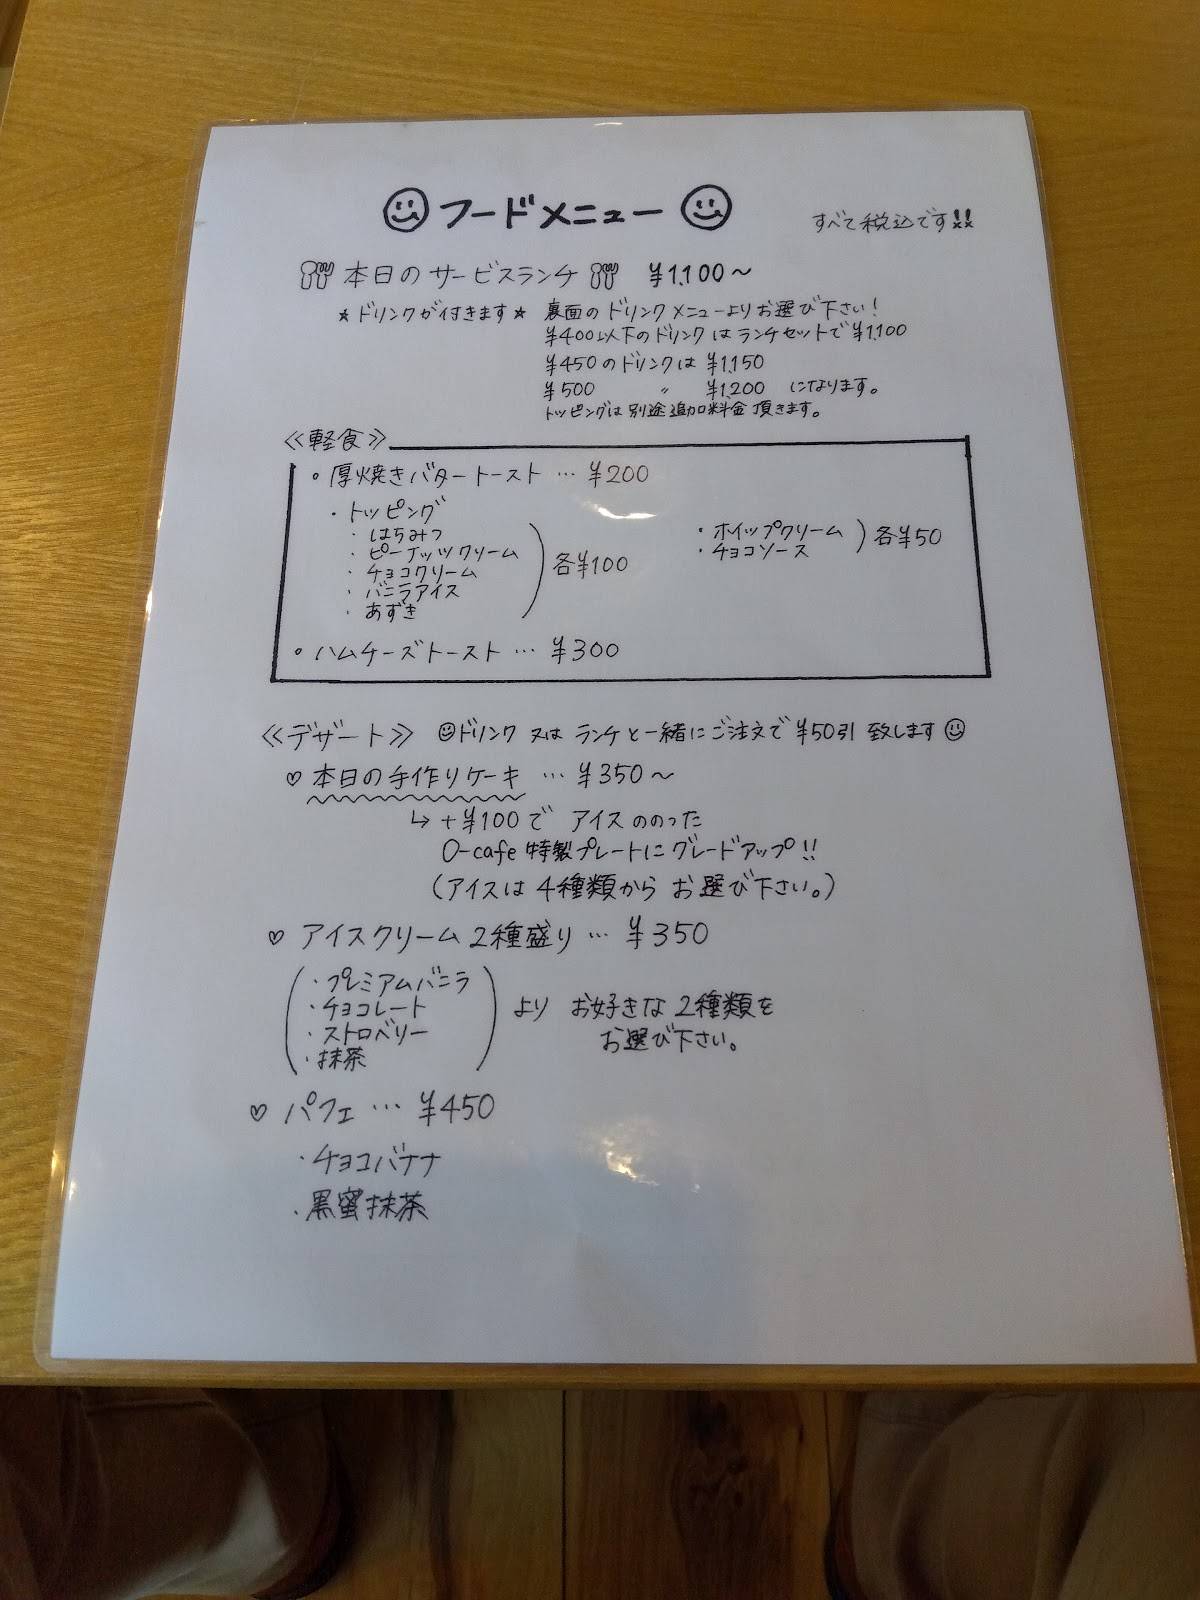 フードメニュー
すべて税込です!!
本日のサービスランチ ¥1,100〜
★ドリンクが付きます★ 裏面のドリンクメニューよりお選び下さい!
¥400以下のドリンクはランチセットで¥1,100
¥450のドリンクは ¥1,150
¥500 〃 ¥1,200 になります。
トッピングは別途追加料金頂きます。
≪軽食≫
・厚焼きバタートースト … ¥200
・トッピング
・はちみつ
・ピーナッツクリーム
・チョコクリーム
・バニラアイス
・あずき
各¥100
・ホイップクリーム
・チョコソース
各¥50
・ハムチーズトースト … ¥300
≪デザート≫ ☺ドリンク又はランチと一緒にご注文で¥50引致します☺
♡本日の手作りケーキ … ¥350〜
↳+¥100で アイスののった
O-cafe特製プレートにグレードアップ!!
(アイスは4種類からお選び下さい。)
♡アイスクリーム2種盛り … ¥350
・プレミアムバニラ
・チョコレート
・ストロベリー
・抹茶
より お好きな2種類を
お選び下さい。
♡パフェ … ¥450
・チョコバナナ
・黒蜜抹茶